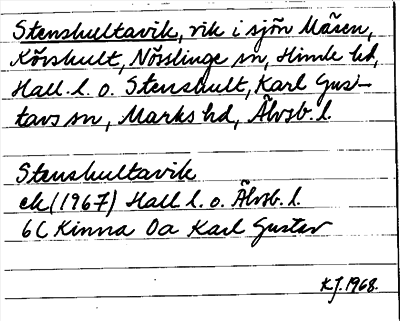 Stenshultavik, vik i sjön Mäsen,
Kövshult, Nösslinge sn, Himle hd,
Hall. l. o. Stenshult, Karl Gus-
tavs sn, Marks hd, Älvsb. l.
Stenshultavik
ek (1967) Hall l. o. Älvsb. l.
6C Kinna 0a Karl Gustav
KJ. 1968.